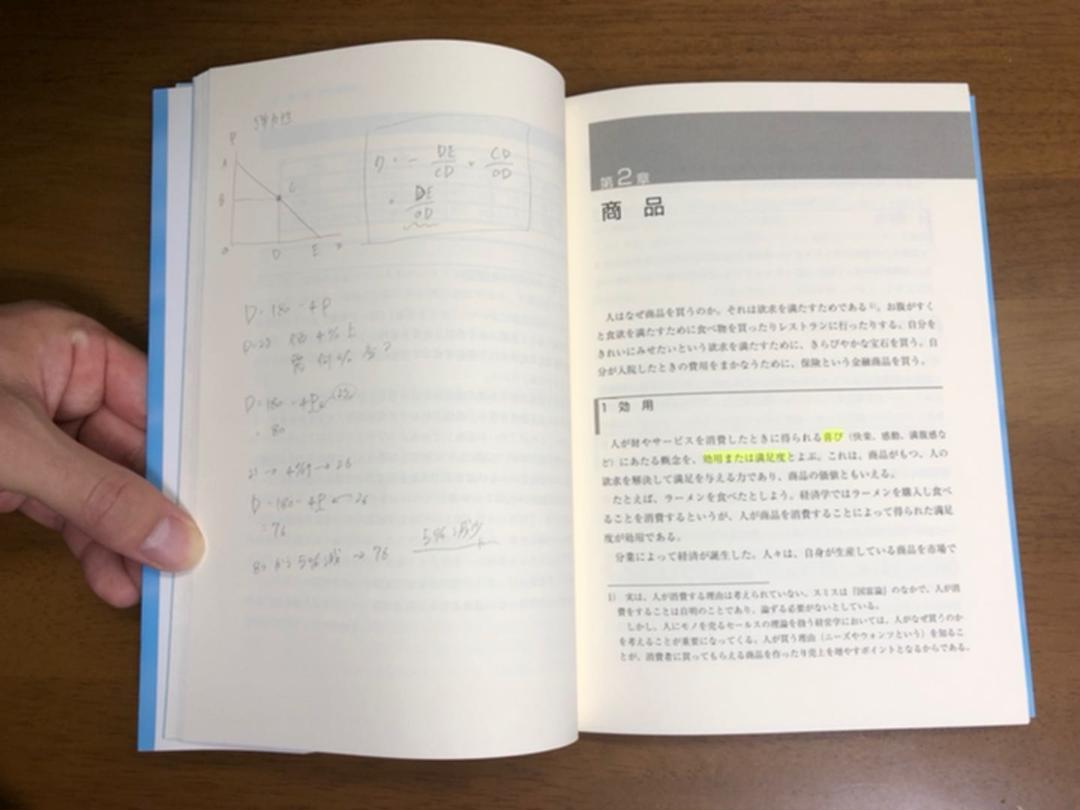 弾力性
P
A
B
C
O
D
E
D
η = - DE/CD × CD/OD
= DE/OD
D = 180 - 4P
D = 180 - 4P
= 80
25 → 4%↑ → 26
D = 180 - 4P ← 26
= 76
80 から 5%減 → 76
5%減少
第2章
商品
人はなぜ商品を買うのか。それは欲求を満たすためである1)。お腹がすく
と食欲を満たすために食べ物を買ったりレストランに行ったりする。自分を
きれいにみせたいという欲求を満たすために、きらびやかな宝石を買う。自
分が入院したときの費用をまかなうために、保険という金融商品を買う。
1 効用
人が財やサービスを消費したときに得られる喜び（快楽、感動、満腹感な
ど）にあたる概念を、効用または満足度とよぶ。これは、商品がもつ、人の
欲求を解決して満足を与える力であり、商品の価値ともいえる。
たとえば、ラーメンを食べたとしよう。経済学ではラーメンを購入し食べ
ることを消費するというが、人が商品を消費することによって得られた満足
度が効用である。
分業によって経済が誕生した。人々は、自身が生産している商品を市場で
1) 実は、人が消費する理由は考えられていない。スミスは『国富論』のなかで、人が消
費をすることは自明のことであり、論ずる必要がないとしている。
しかし、人にモノを売るセールスの理論を扱う経営学においては、人がなぜ買うのか
を考えることが重要になってくる。人が買う理由（ニーズやウォンツという）を知るこ
とが、消費者に買ってもらえる商品を作ったり売上を増やすポイントとなるからである。